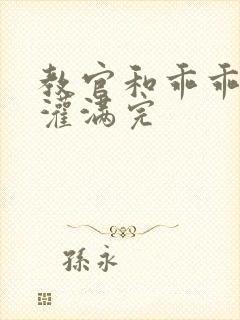 教官和乖乖
灌满完
孫永